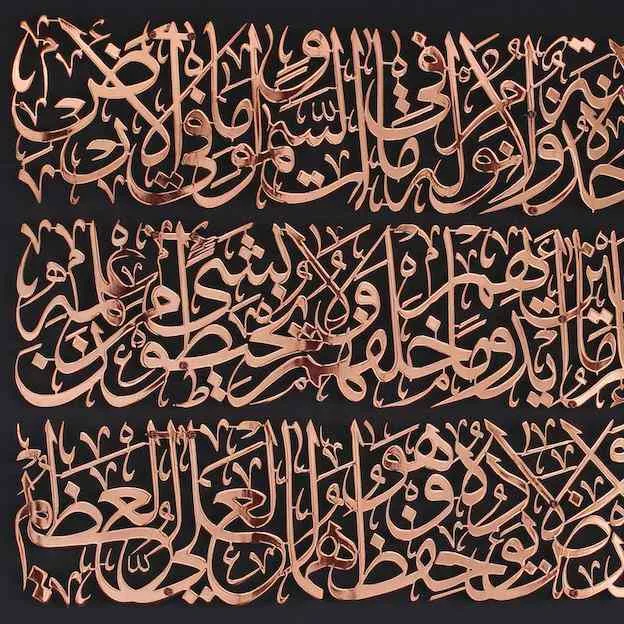 سنة ولا نوم له ما في السموات وما في الأرض
ما بين أيديهم وما خلفهم ولا يحيطون بشيء من علمه
ولا يؤده حفظهما وهو العلي العظيم